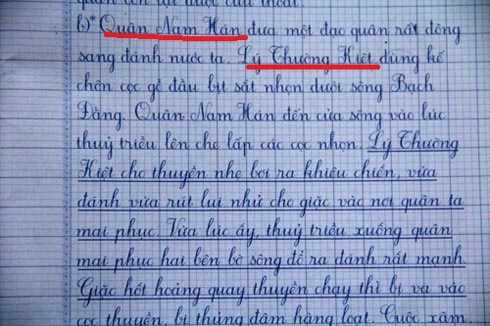 b)* Quân Nam Hán đưa một đạo quân rất đông
sang đánh nước ta. Lý Thường Kiệt dùng kế
chôn cọc gỗ đầu bịt sắt nhọn dưới sông Bạch
Đằng. Quân Nam Hán đến cửa sông vào lúc
thuỷ triều lên che lấp các cọc nhọn. Lý Thường
Kiệt cho thuyền nhẹ bơi ra khiêu chiến, vừa
đánh vừa rút lui nhử cho giặc vào nơi quân ta
mai phục. Vừa lúc ấy, thuỷ triều xuống quân
mai phục hai bên bờ sông đổ ra đánh rất mạnh.
Giặc hốt hoảng quay thuyền chạy thì bị va vào
cọc thuyền, bị thủng đắm hàng loạt. Cuộc xâm